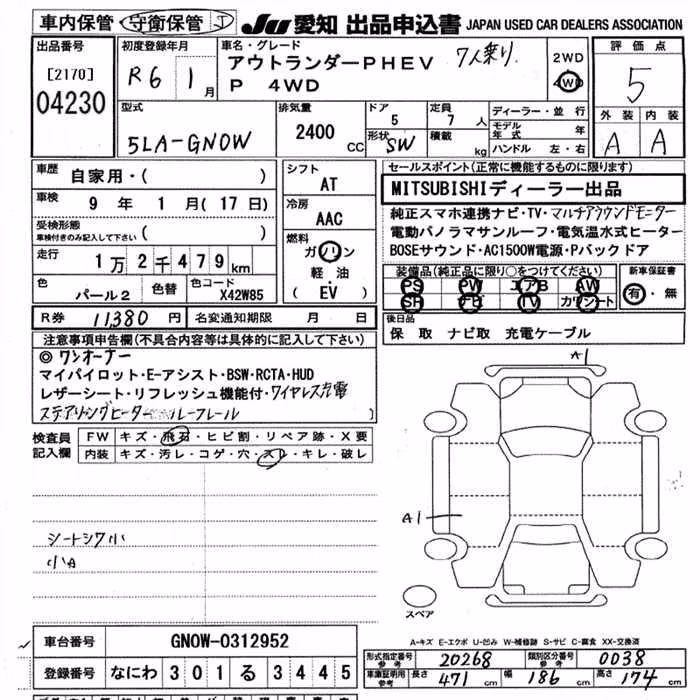 車内保管 守衛保管 J JU 愛知 出品申込書 JAPAN USED CAR DEALERS ASSOCIATION
出品番号 初度登録年月 車名・グレード 評価点
[2170] R6 1月 アウトランダーPHEV 7人乗り 2WD 5
04230 P 4WD 4WD
型式 排気量 ドア 定員 ディーラー・並行 外装 内装
5LA-GN0W 2400 CC 5 7人 モデル年式 年 A A
形状 SW 積載 kg ハンドル 左・右
車歴 自家用・( ) シフト AT セールスポイント(正常に機能するものに限ります)
車検 9年 1月(17日) 冷房 AAC MITSUBISHIディーラー出品
受検形態 車検付きのみ記入して下さい ( ) 燃料 純正スマホ連携ナビ・TV・マルチアラウンドモニター
走行 1万2千479km ガソリン 電動パノラマサンルーフ・電気温水式ヒーター
軽油 BOSEサウンド・AC1500W電源・Pバックドア
色 パール2 色替 色コード X42W85 (EV) 装備品(純正品に限り○をつけてください) 新車保証書
PS PW エアB AW 有・無
SR ナビ TV カワシート
R券 11,380円 名変通知期限 月 日 後日品
保 取 ナビ取 充電ケーブル
注意事項申告欄(不具合内容等は具体的に記入して下さい)
◎ワンオーナー
マイパイロット・E-アシスト・BSW・RCTA・HUD
レザーシート・リフレッシュ機能付・ワイヤレス充電
ステアリングヒーター ルーフレール )
A1
検査員記入欄 FW キズ・飛石・ヒビ割・リペア跡・X要
内装 キズ・汚レ・コゲ・穴・スレ・キレ・破レ
A1
シートシワ小
小A
スペア
A-キズ E-エクボ U-凹み W-補修跡 S-サビ C-腐食 XX-交換済
車台番号 GN0W-0312952
形式指定番号 参考 20268 類別区分番号 参考 0038
登録番号 なにわ 301 る 3445
車庫証明用 参考 長さ 471 幅 186 高さ 174